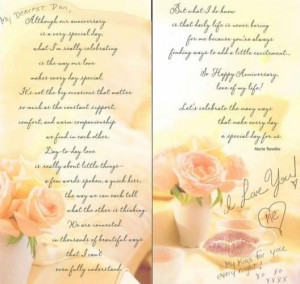 My Dearest Dan,
Although our anniversary
is a very special day,
what I'm really celebrating
is the way our love
makes every day special.
It's not the big occasions that matter
so much as the constant support,
comfort, and warm companionship
we find in each other.
Day-to-day love
is really about little things—
a few words spoken, a quick kiss,
the way we can each tell
what the other is thinking.
We are connected
in thousands of beautiful ways
that I can't
even fully understand
But what I do know
is that daily life is never boring
for me because you're always
finding ways to add a little excitement...
So Happy Anniversary,
love of my life!
Let's celebrate the many ways
that make every day
a special day for us.
I Love You!
Me
My Kiss for you
every night!
XO XO
XXXX